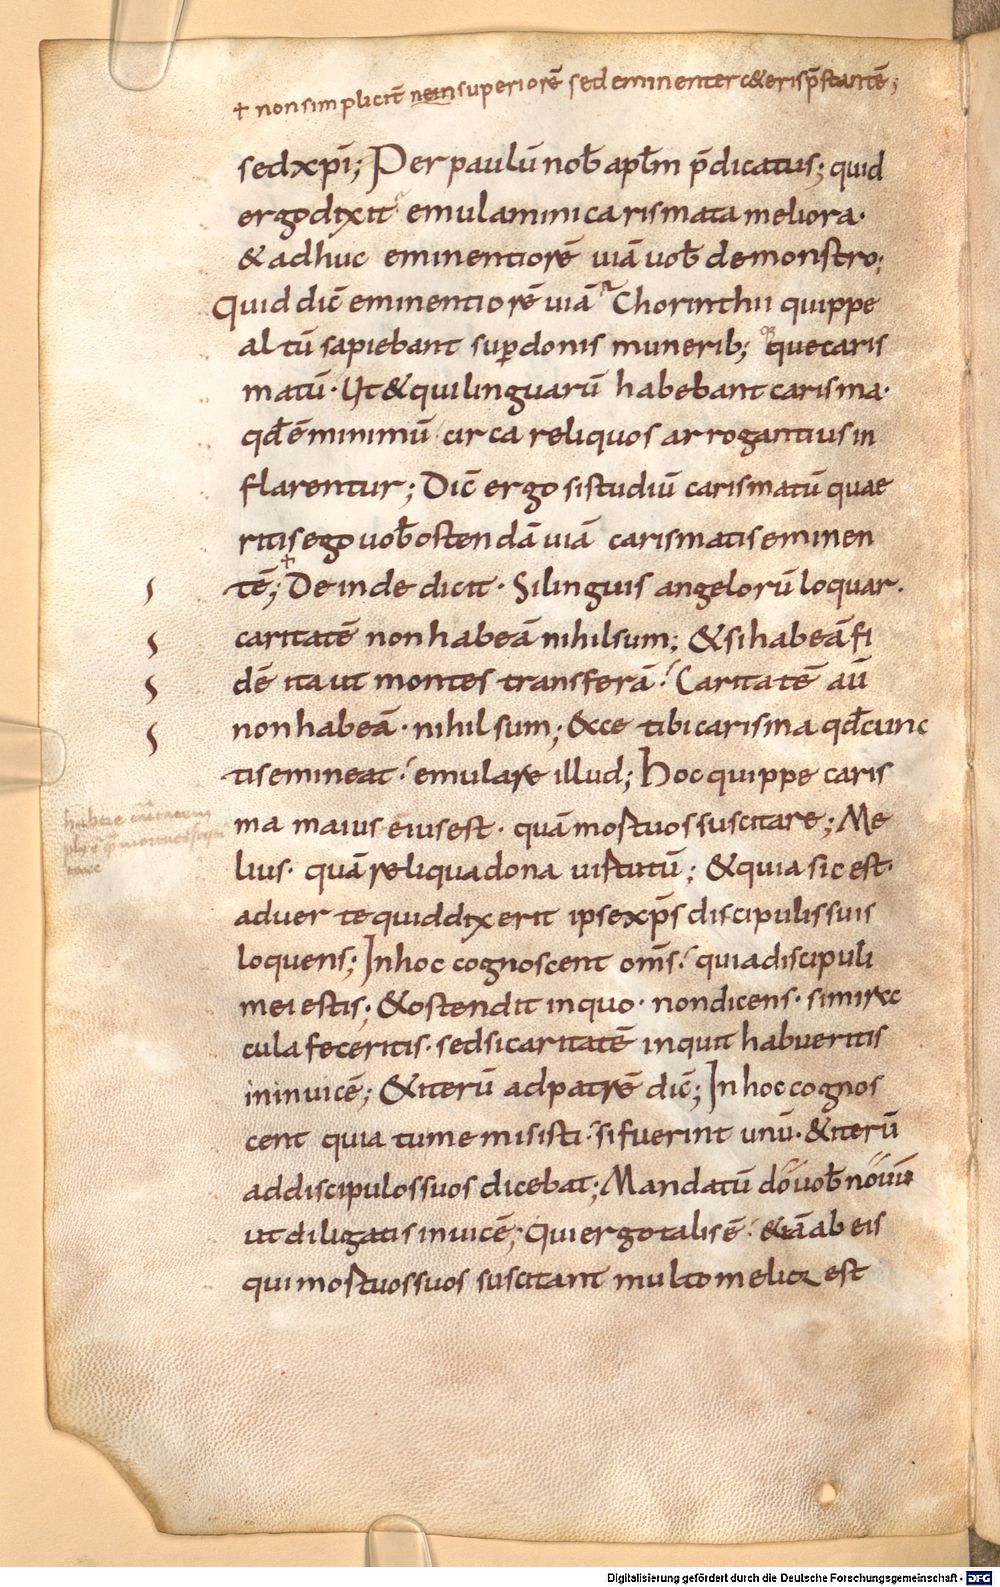 + non simplicit̄ nem superiorē sed eminenter c&eris p̄stantē;
sed xp̄i; Per paulū nob̄ apl̄m p̄dicatus; quid
ergo dixit emulamini carismata meliora·
& adhuc eminentiorē uiā uob̄ demonstro;
Quid dic̄ eminentiorē uiā Chorinthii quippe
altū sapiebant sup donis munerib; que caris
matū· Ut & qui linguarū habebant carisma·
qd̄ ē minimū circa reliquos arrogantius in
flarentur; Dic̄ ergo si studiū carismatū quae
ritis ego uob̄ ostendā uiā carismatis eminen
tē;+ Deinde dicit· Si linguis angelorū loquar·
caritatē non habeā nihil sum; & si habeā fi
dē ita ut montes transferā· Caritatē aū
non habeā· nihil sum; Ecce tibi carisma qd̄ cunc
tis emineat· emulare illud; Hoc quippe caris
ma maius eius est· quā mortuos suscitare; Me
lius· quā reliqua dona uirtutū; & quia sic est·
aduerte quid dixerit ipse xp̄s discipulis suis
loquens; In hoc cognoscent om̄s· quia discipuli
mei estis; & ostendit in quo· non dicens· si mira
cula feceritis· sed si caritatē inquit habueritis
in inuicē; & iterū ad patrē dic̄; In hoc cognos
cent quia tu me misisti· si fuerint unū· & iterū
ad discipulos suos dicebat; Mandatū do uob̄ nouū
ut diligatis inuicē; Qui ergo talis ē· &iā ab eis
qui mortuos suos suscitant multo melior est
Digitalisierung gefördert durch die Deutsche Forschungsgemeinschaft - DFG